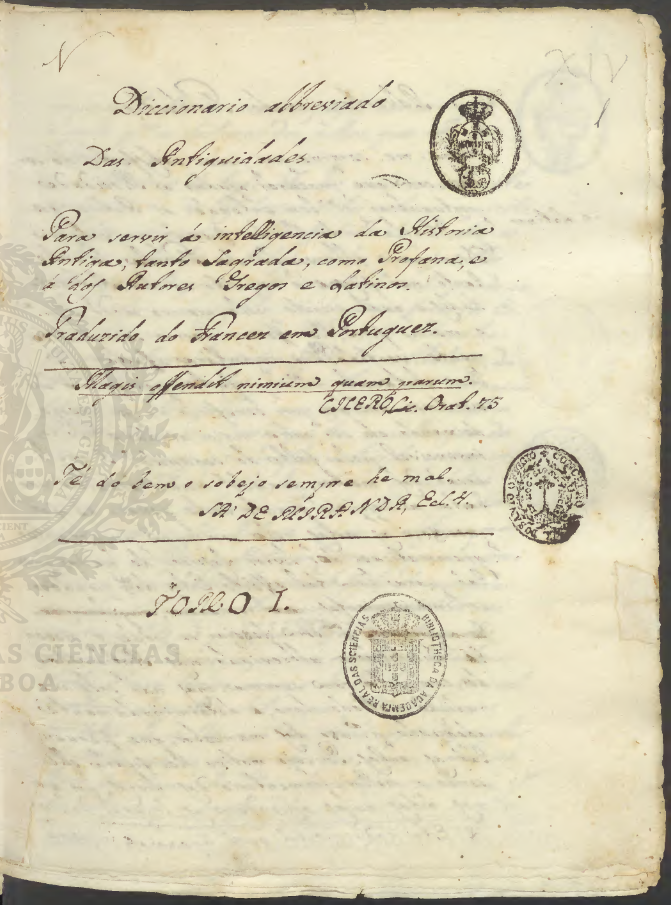 XIV
1
Diccionario abbreviado
Das Antiguidades
Para servir á intelligencia da Historia
Antiga, tanto Sagrada, como Profana, e
a dos Autores Gregos e Latinos.
Traduzido do Francez em Portuguez.
Magis offendit nimium quam parum.
CICERO, Lic. Orat. 73
Té do bem o sobejo sempre he mal.
SÁ DE MIRANDA, Ecl. 4.
TOMO I.
BIBLIOTHECA DA ACADEMIA REAL DAS SCIENCIAS
AS CIÊNCIAS
BOA